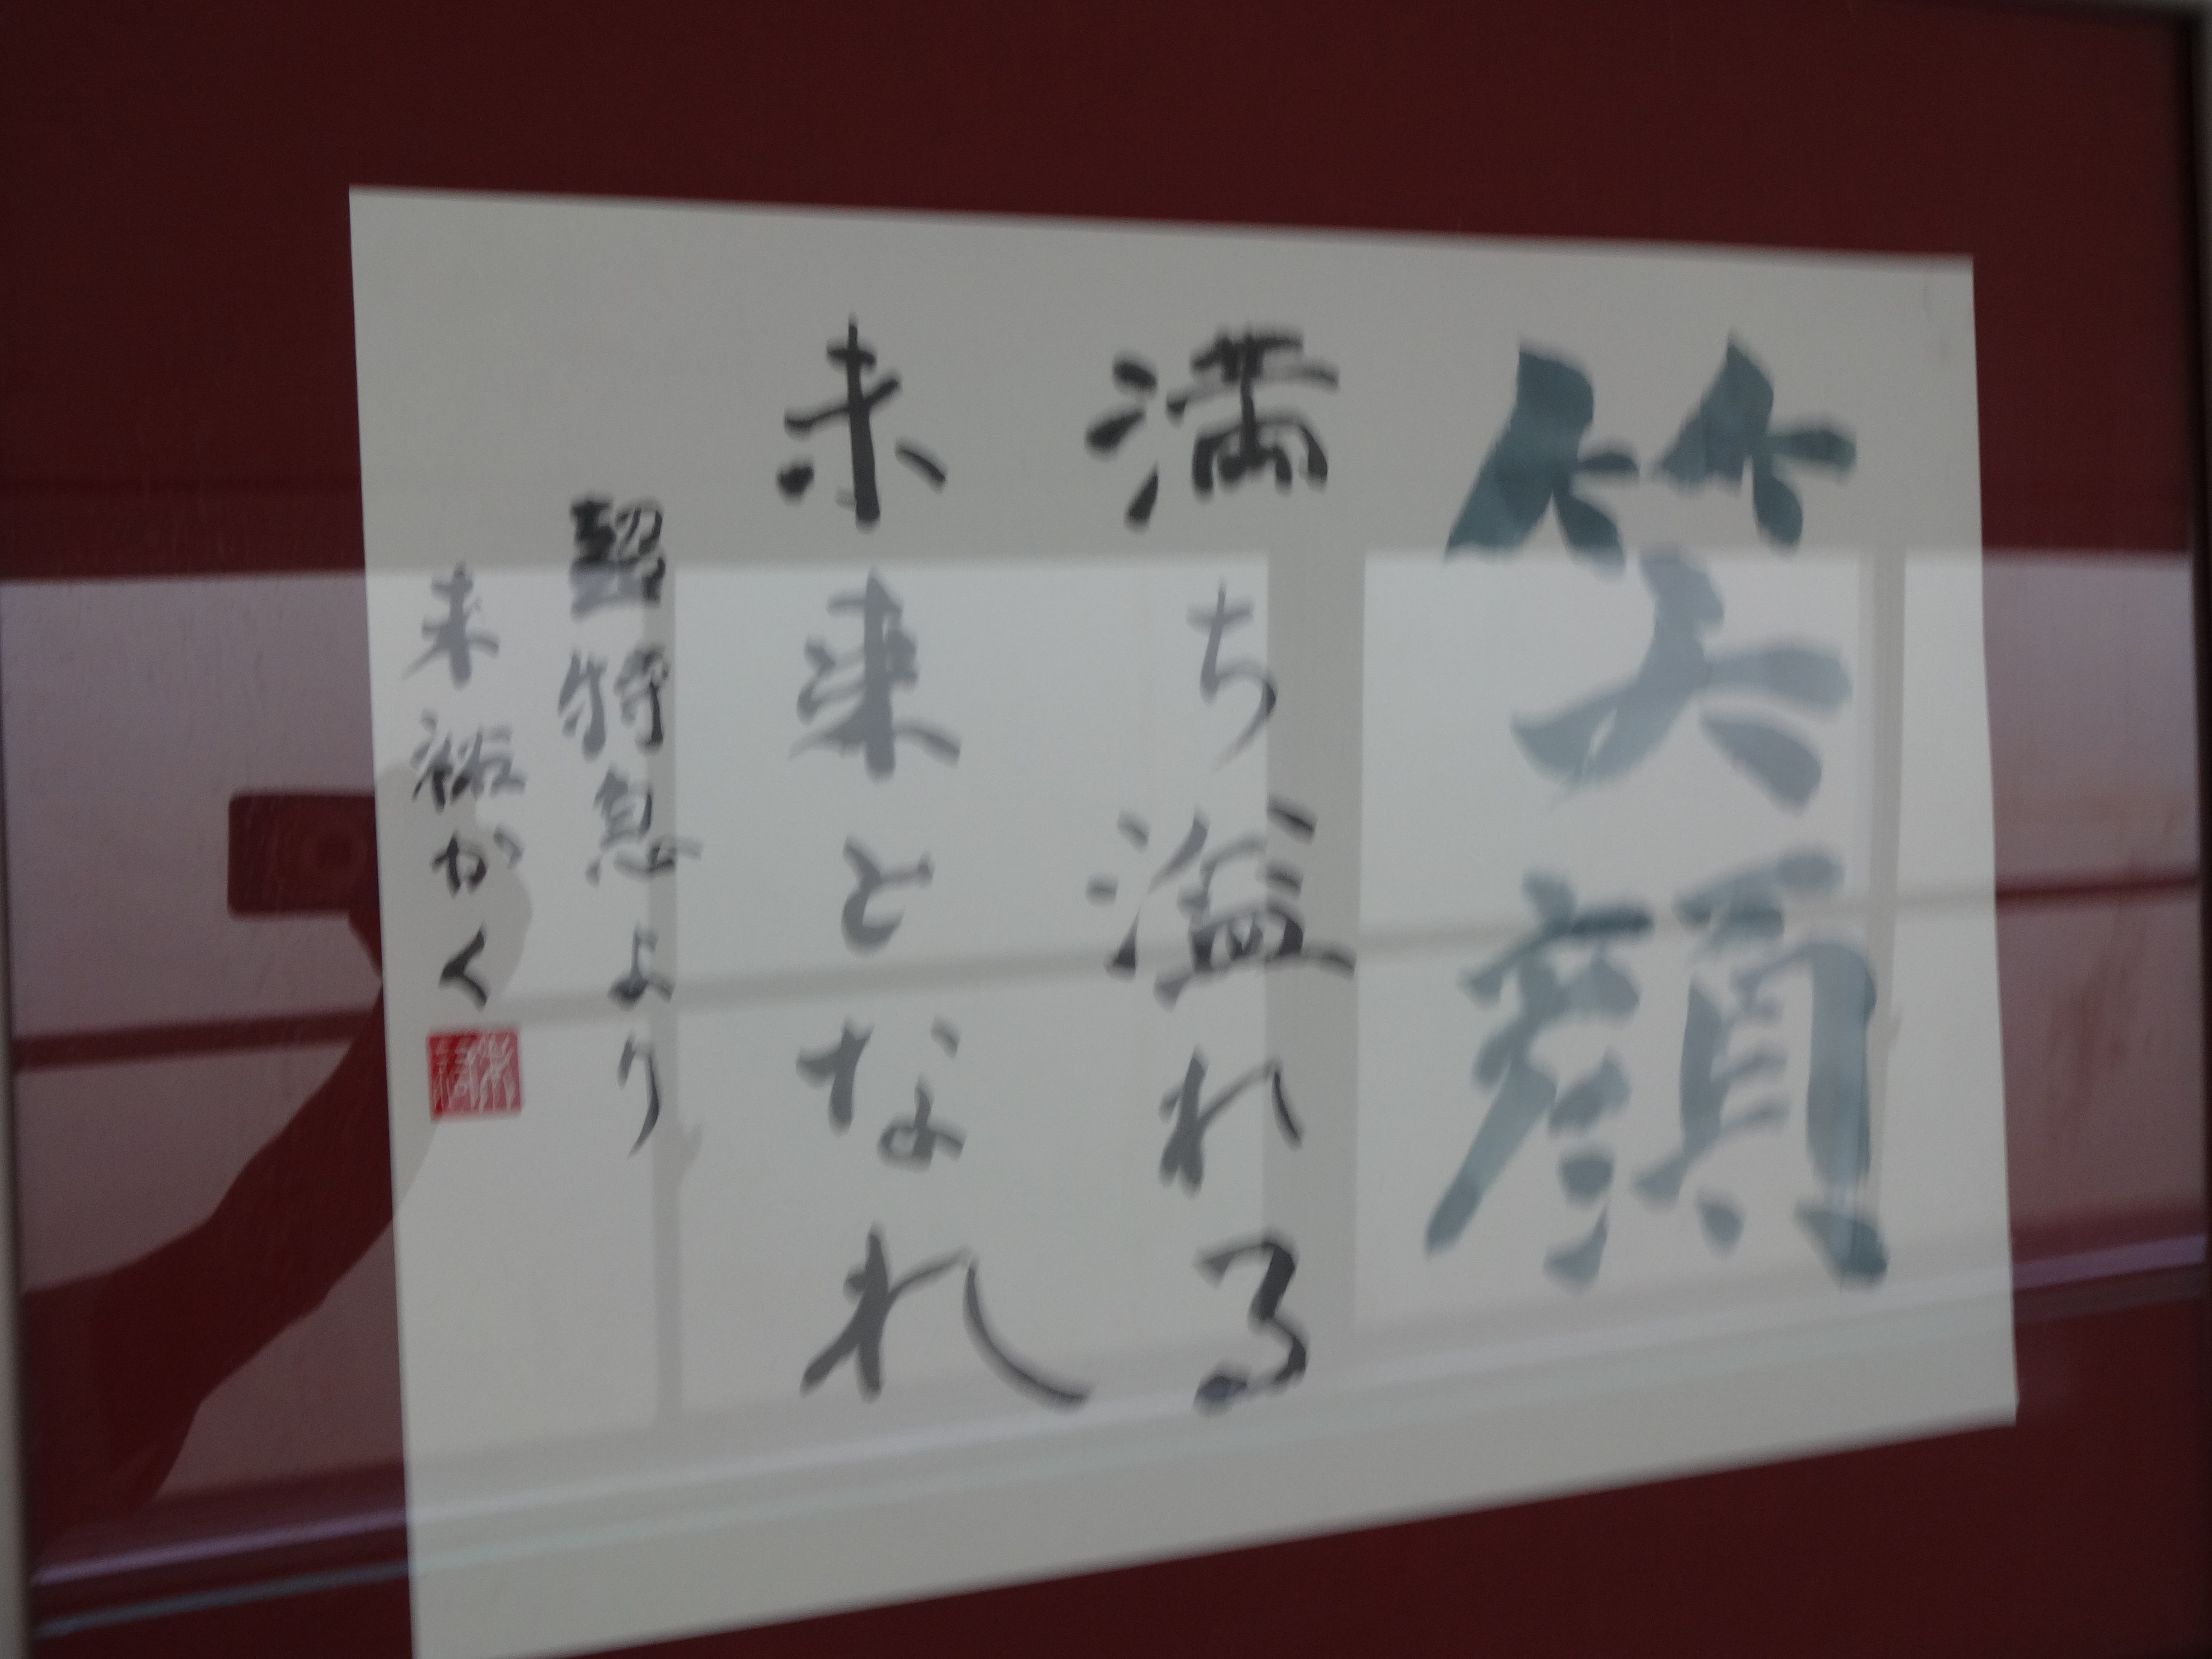 笑顔
満ち溢れる
未来となれ
特急より
来裕かく